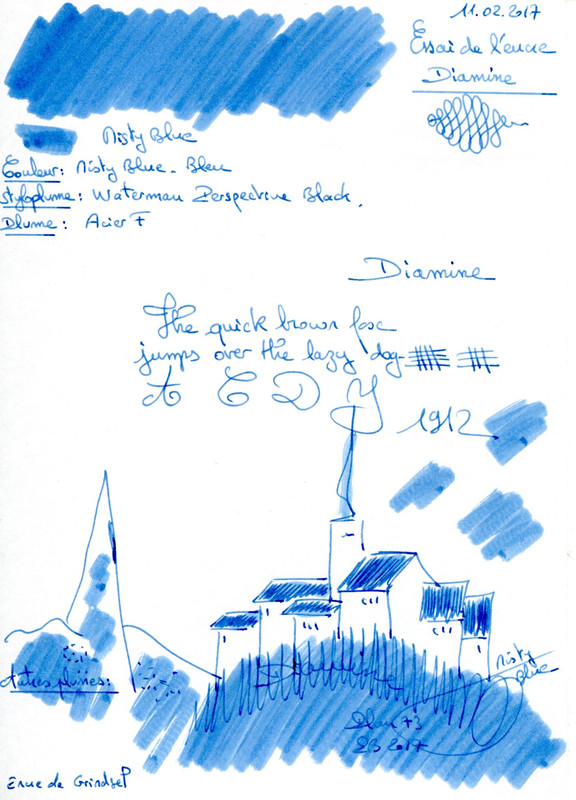 11.02.2017
Essai de l'encre
Diamine
Misty Blue
Couleur: Misty Blue - Bleu
Styloplume: Waterman Perspective Black.
Plume: Acier F
Diamine
The quick brown fox
jumps over the lazy dog-
A C D Y
1912
Diamine
Misty
Blue
Autres plumes:
23 2017